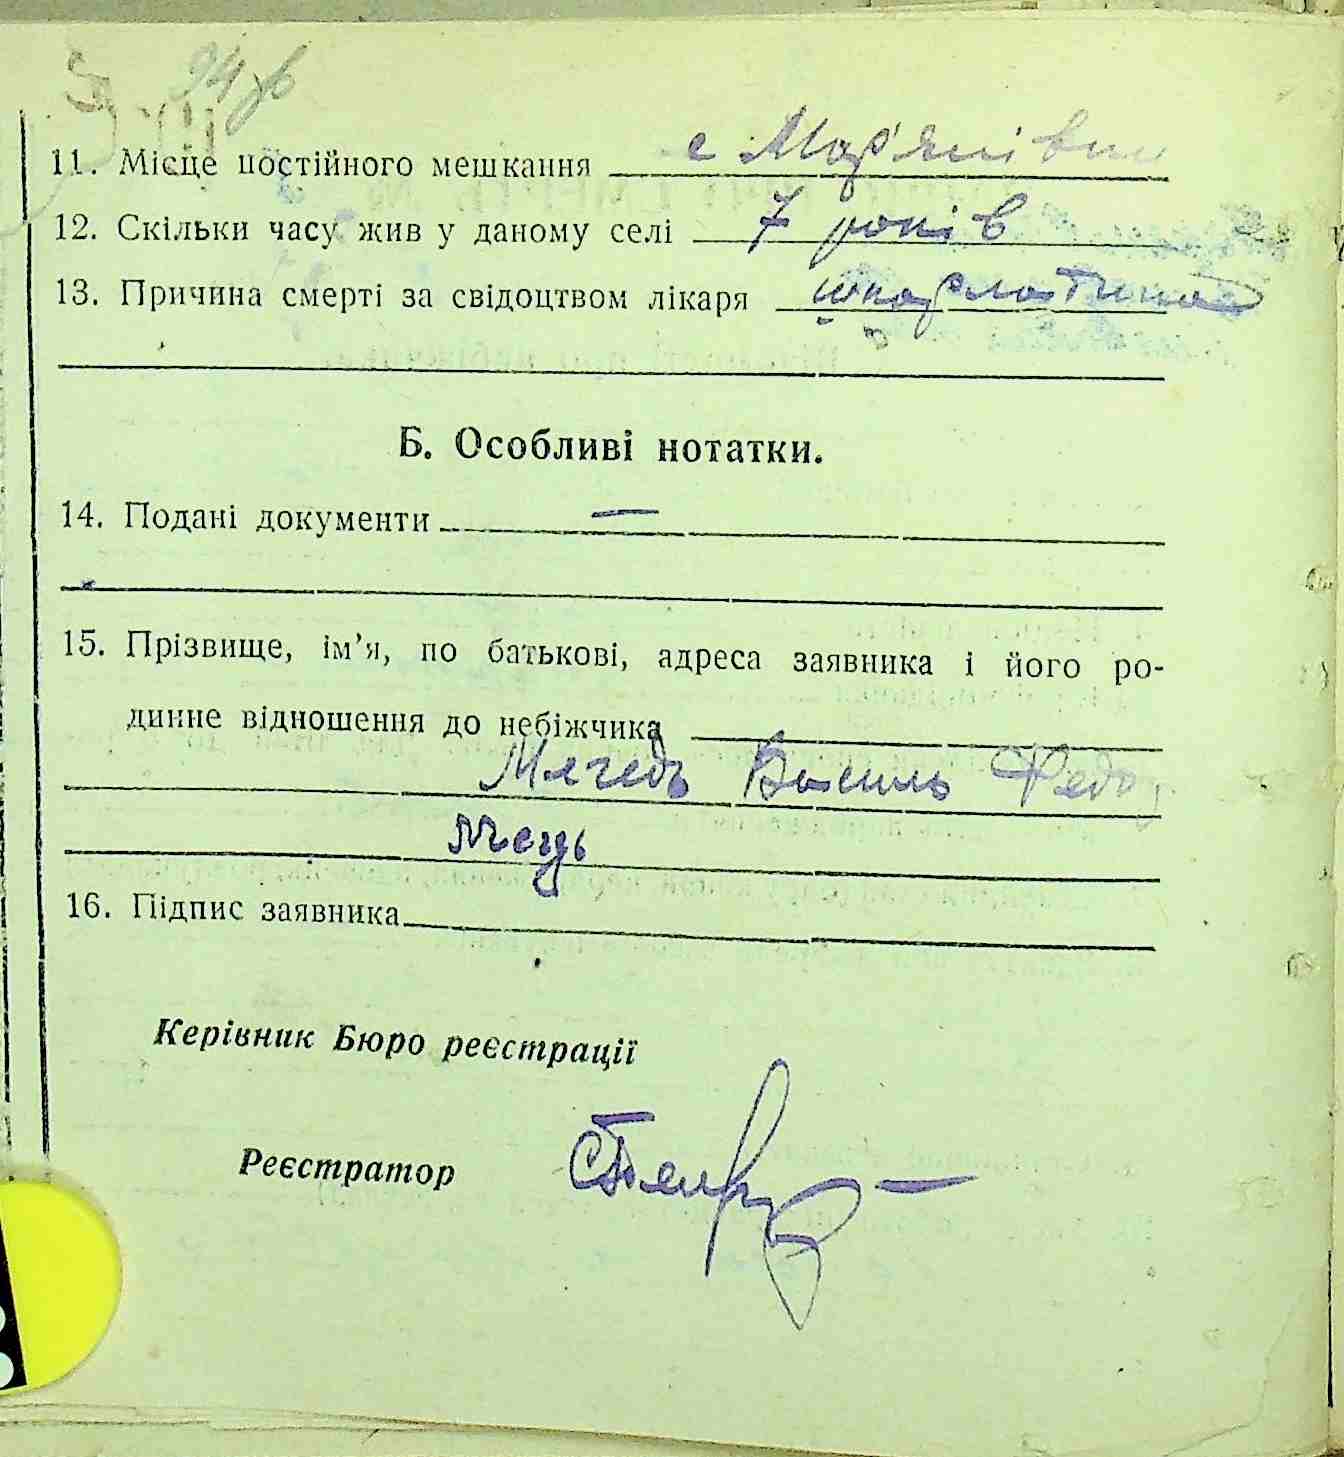 94 зв
11. Місце постійного мешкання с Мар'янівка
12. Скільки часу жив у даному селі 7 років
13. Причина смерті за свідоцтвом лікаря шкарлатина
Б. Особливі нотатки.
14. Подані документи —
15. Прізвище, ім’я, по батькові, адреса заявника і його ро-
динне відношення до небіжчика
Василь Федо
16. Підпис заявника
Керівник Бюро реєстрації
Реєстратор